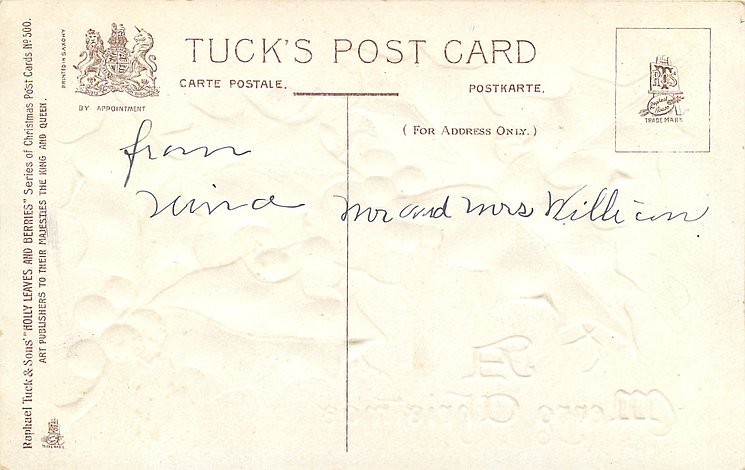 TUCK'S POST CARD
CARTE POSTALE.
POSTKARTE.
(FOR ADDRESS ONLY.)
BY APPOINTMENT
PRINTED IN SAXONY
Raphael Tuck & Sons' "HOLLY LEAVES AND BERRIES" Series of Christmas Post Cards Nº 500.
ART PUBLISHERS TO THEIR MAJESTIES THE KING AND QUEEN.
TRADE MARK
from
Mr and Mrs William
A
Merry Christmas